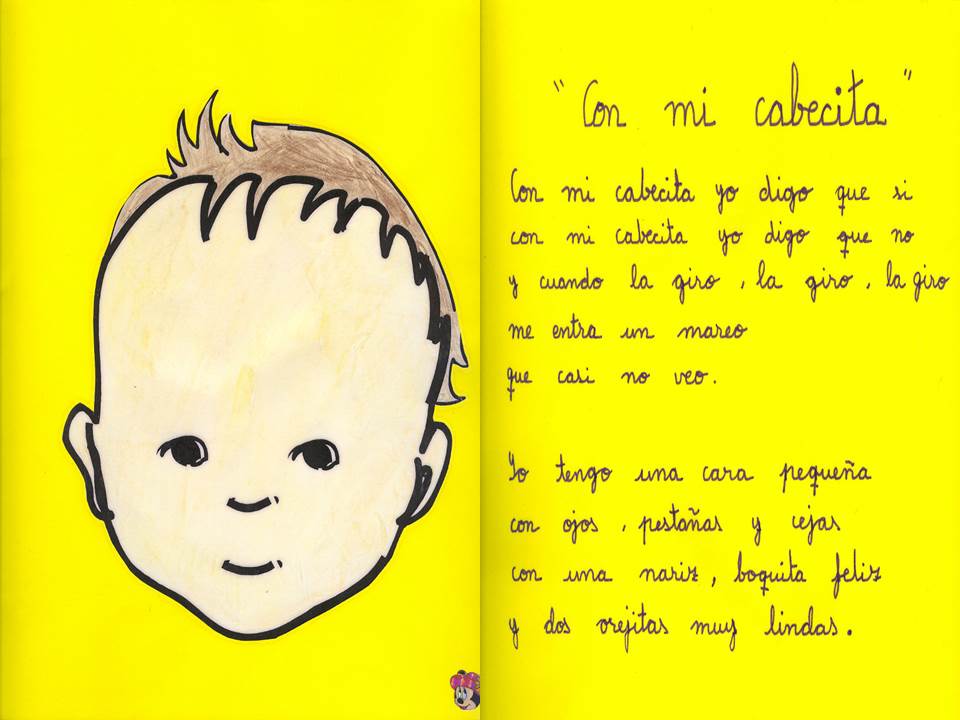 "Con mi cabecita"
Con mi cabecita yo digo que si
con mi cabecita yo digo que no
y cuando la giro, la giro, la giro
me entra un mareo
que casi no veo.
Yo tengo una cara pequeña
con ojos, pestañas y cejas
con una nariz, boquita feliz
y dos orejitas muy lindas.